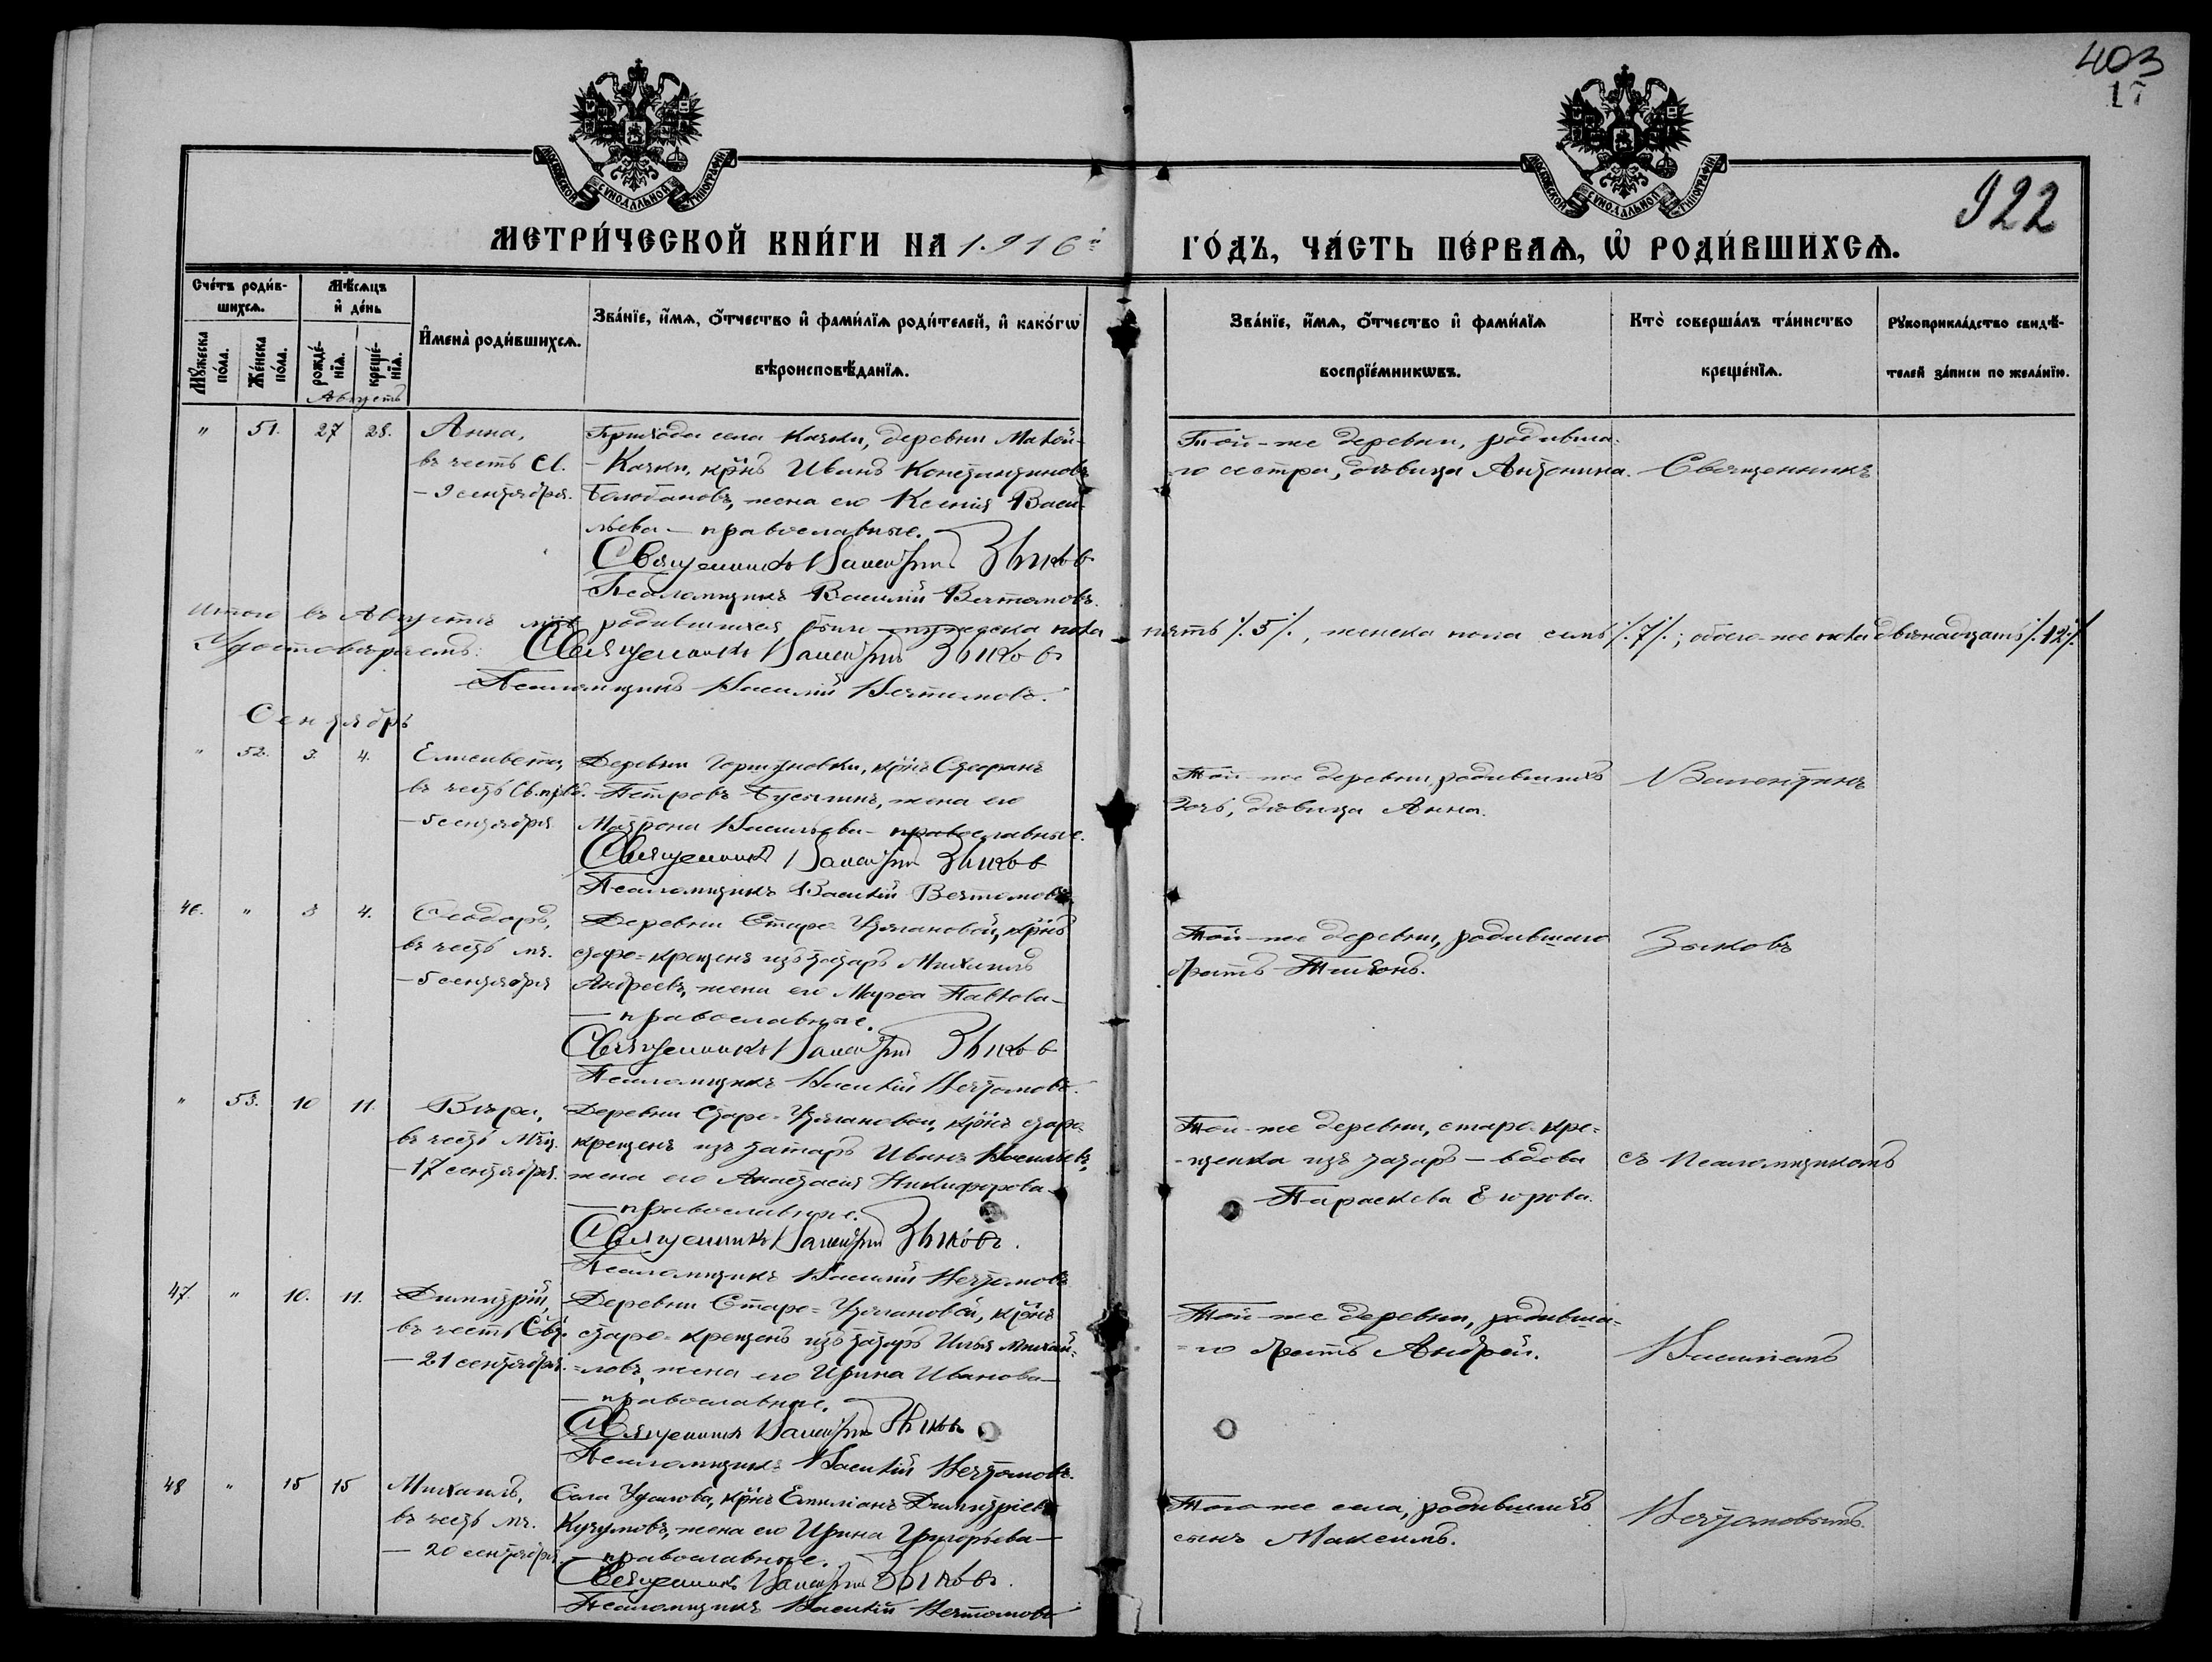 403
17
922
МОСКОВСКОЙ СѴНОДАЛЬНОЙ ТИПОГРАФІИ
МОСКОВСКОЙ СѴНОДАЛЬНОЙ ТИПОГРАФІИ
МЕТРИ́ЧЕСКОЙ КНИ́ГИ НА 1916й
ГО́ДЪ, ЧА́СТЬ ПЕ́РВАѦ, Ѡ҆ РОДИ́ВШИХСѦ.
Сче́тъ роди́в-
шихсѧ.
Мꙋ́жеска по́ла.
Же́нска по́ла.
Мѣ́сѧцъ
и҆ де́нь
рожде́-нїѧ.
креще́-нїѧ.
И҆мена̀ роди́вшихсѧ.
Зва́нїе, и҆́мѧ, ѻ҆́тчество и҆ фами́лїѧ роди́телей, и҆ како́гѡ
вѣроисповѣ́данїѧ.
Зва́нїе, и҆́мѧ, ѻ҆́тчество и҆ фами́лїѧ
воспрїе́мникѡвъ.
Кто̀ соверша́лъ та́инство
креще́нїѧ.
Рꙋкоприкла́дство свидѣ́-
телей за́писи по жела́нїю.
Августъ
" 51. 27 28. Анна,
въ честь св.
– 9 сентября.
Прихода села Качки, деревни Малой-
– Качки, крнъ Иванъ Константиновъ
Балобановъ, жена его Ксенія Васи-
льева – православные.
Священникъ Валентинъ Зыковъ
Псаломщикъ Василій Вечтомовъ.
Той-же деревни, родивша-
го сестра, дѣвица Антонина.
Священникъ
Итого въ Августѣ м-цѣ родившихся было мужеска пола пять ⁒5⁒, женска пола семь ⁒7⁒; обоего же пола двѣнадцать ⁒12⁒
Удостовѣряетъ: Священникъ Валентинъ Зыковъ
Псаломщикъ Василій Вечтомовъ.
Сентябрь
" 52. 3. 4. Елисавета,
въ честь св. прав.
– 5 сентября
Деревни крнъ Стефанъ
Петровъ жена его
Матрона Васильева – православные.
Священникъ Валентинъ Зыковъ
Псаломщикъ Василій Вечтомовъ.
Той-же деревни, родившихъ
дочь, дѣвица Анна.
Валентинъ
46. " 3 4. Ѳеодоръ,
въ честь мч.
– 5 сентября
Деревни Старо-Утягановой, крнъ
старо-крещенъ изъ татаръ Михаилъ
Андреевъ, жена его Марѳа Павлова –
– православные.
Священникъ Валентинъ Зыковъ
Псаломщикъ Василій Вечтомовъ.
Той-же деревни, родившаго
братъ Тихонъ.
Зыковъ
" 53. 10 11. Вѣра,
въ честь мчц.
– 17 сентября.
Деревни Старо-Утягановой, крнъ старо-
крещенъ изъ татаръ Иванъ Васильевъ,
жена его Анастасія Никифорова –
– православные.
Священникъ Валентинъ Зыковъ.
Псаломщикъ Василій Вечтомовъ
Той-же деревни, старо-кре-
-щенка изъ татаръ – вдова
Параскева Егорова.
съ псаломщикомъ
47. " 10. 11. Димитрій,
въ честь Свт.
– 21 сентября.
Деревни Старо-Утягановой, крнъ
старо-крещенъ изъ татаръ Илья Михай-
-ловъ, жена его Ирина Иванова –
– православные.
Священникъ Валентинъ Зыковъ
Псаломщикъ Василій Вечтомовъ.
Той-же деревни, родивша-
-го братъ Андрей.
Василіемъ
48 " 15 15 Михаилъ,
въ честь мч.
– 20 сентября.
Села крнъ Емиліанъ Димитріевъ
жена его Ирина Григорьева –
– православные.
Священникъ Валентинъ Зыковъ.
Псаломщикъ Василій Вечтомовъ
Того же села, родившихъ
сынъ Максимъ.
Вечтомовымъ.